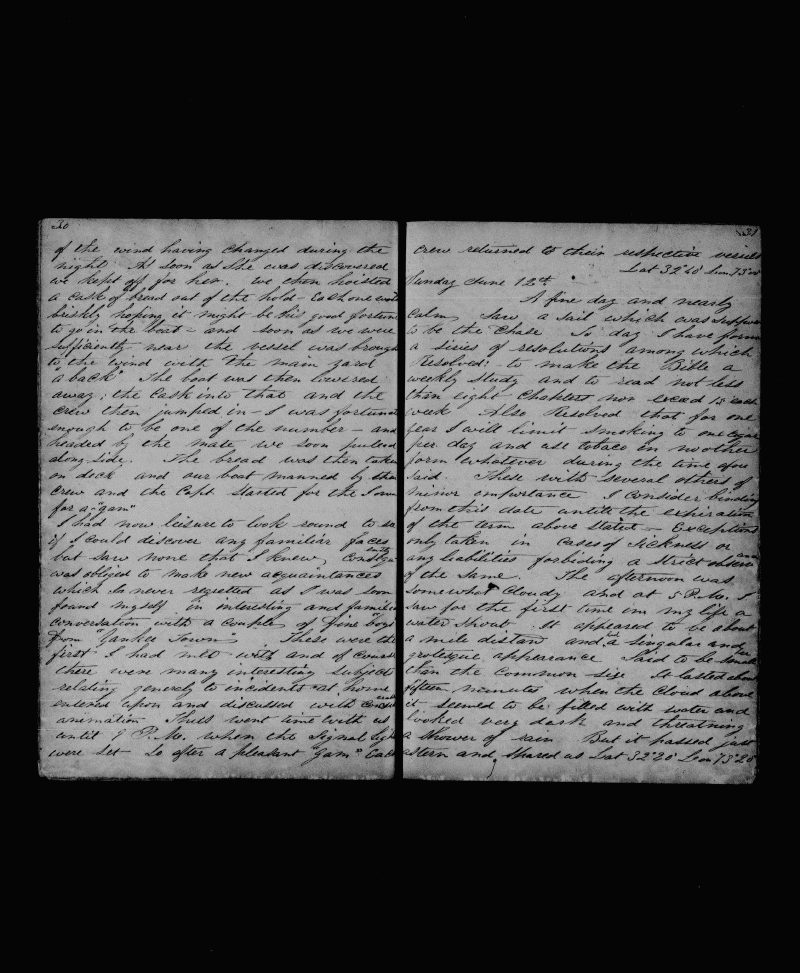 30
of the wind having changed during the
night At soon as She was discovered
we kept off for her. We then hoisted
a cask of bread out of the hold - Each one
briskly hoping it might be his good fortune
to go in the boat - and soon as we were
sufficiently near the vessel was brough
to the wind with the main yard
"a back" The boat was then lowered
away; the cask into that and the
crew then jumped in - I was fortuna
enough to be one of the number - and
headed by the mate we soon pulled
along side. The bread was then taken
on deck and our boat manned by the
crew and the Capt started for the
for a "gam"
I had now leisure to look round to se
if I could discover any familiar faces
but saw none that I knew,
was obliged to make new acquaintances
which I never regretted as I was soon
found myself in intersting and familia
conversation with a couple of fine boys
from "Yankee Town" These were the
first I had met with and of course
there were many interesting subjects
relating generly to incidents at home
enterd upon and discussed with
animation Thus went time with us
until 9 P.M. when the Signal ligh
were set So after a pleasant "Gam" Each
31
crew returned to their respective vessels
Lat 32°40' Lon 73°
Sunday June 12th.
A fine day and nearly
Calm, Saw a Sail which was
to be the Chase To day I have form
a siries of resolutions among which
Resolved: to make the Bible a
weekly study and to read not less
than eight Chapters nor exead 15 each
week Also Resolved that for one
year I will limit smoking to one cigar
per day and use tobaco in no other
form whatever during the time afore
said. These with several others of
minor emportance I consider binding
from this date untill the expiration
of the term above stated - Exceptions
only taken in cases of Sickness or
any liabilities forbiding a Strict
of the Same. The afternoon was
Somewhat Cloudy and at 5 P.M. I
saw for the first time im my life a
water Spout. It appeared to be about
a mile distan and had a singular and
grotesque appearance Said to be
than the common size It lasted about
fifteen minutes when the cloud above
it seemed to be filled with water and
looked very dark and threatning
a shower of rain But it passed just
astern and shared us Lat 32°20' Lon 73°20'